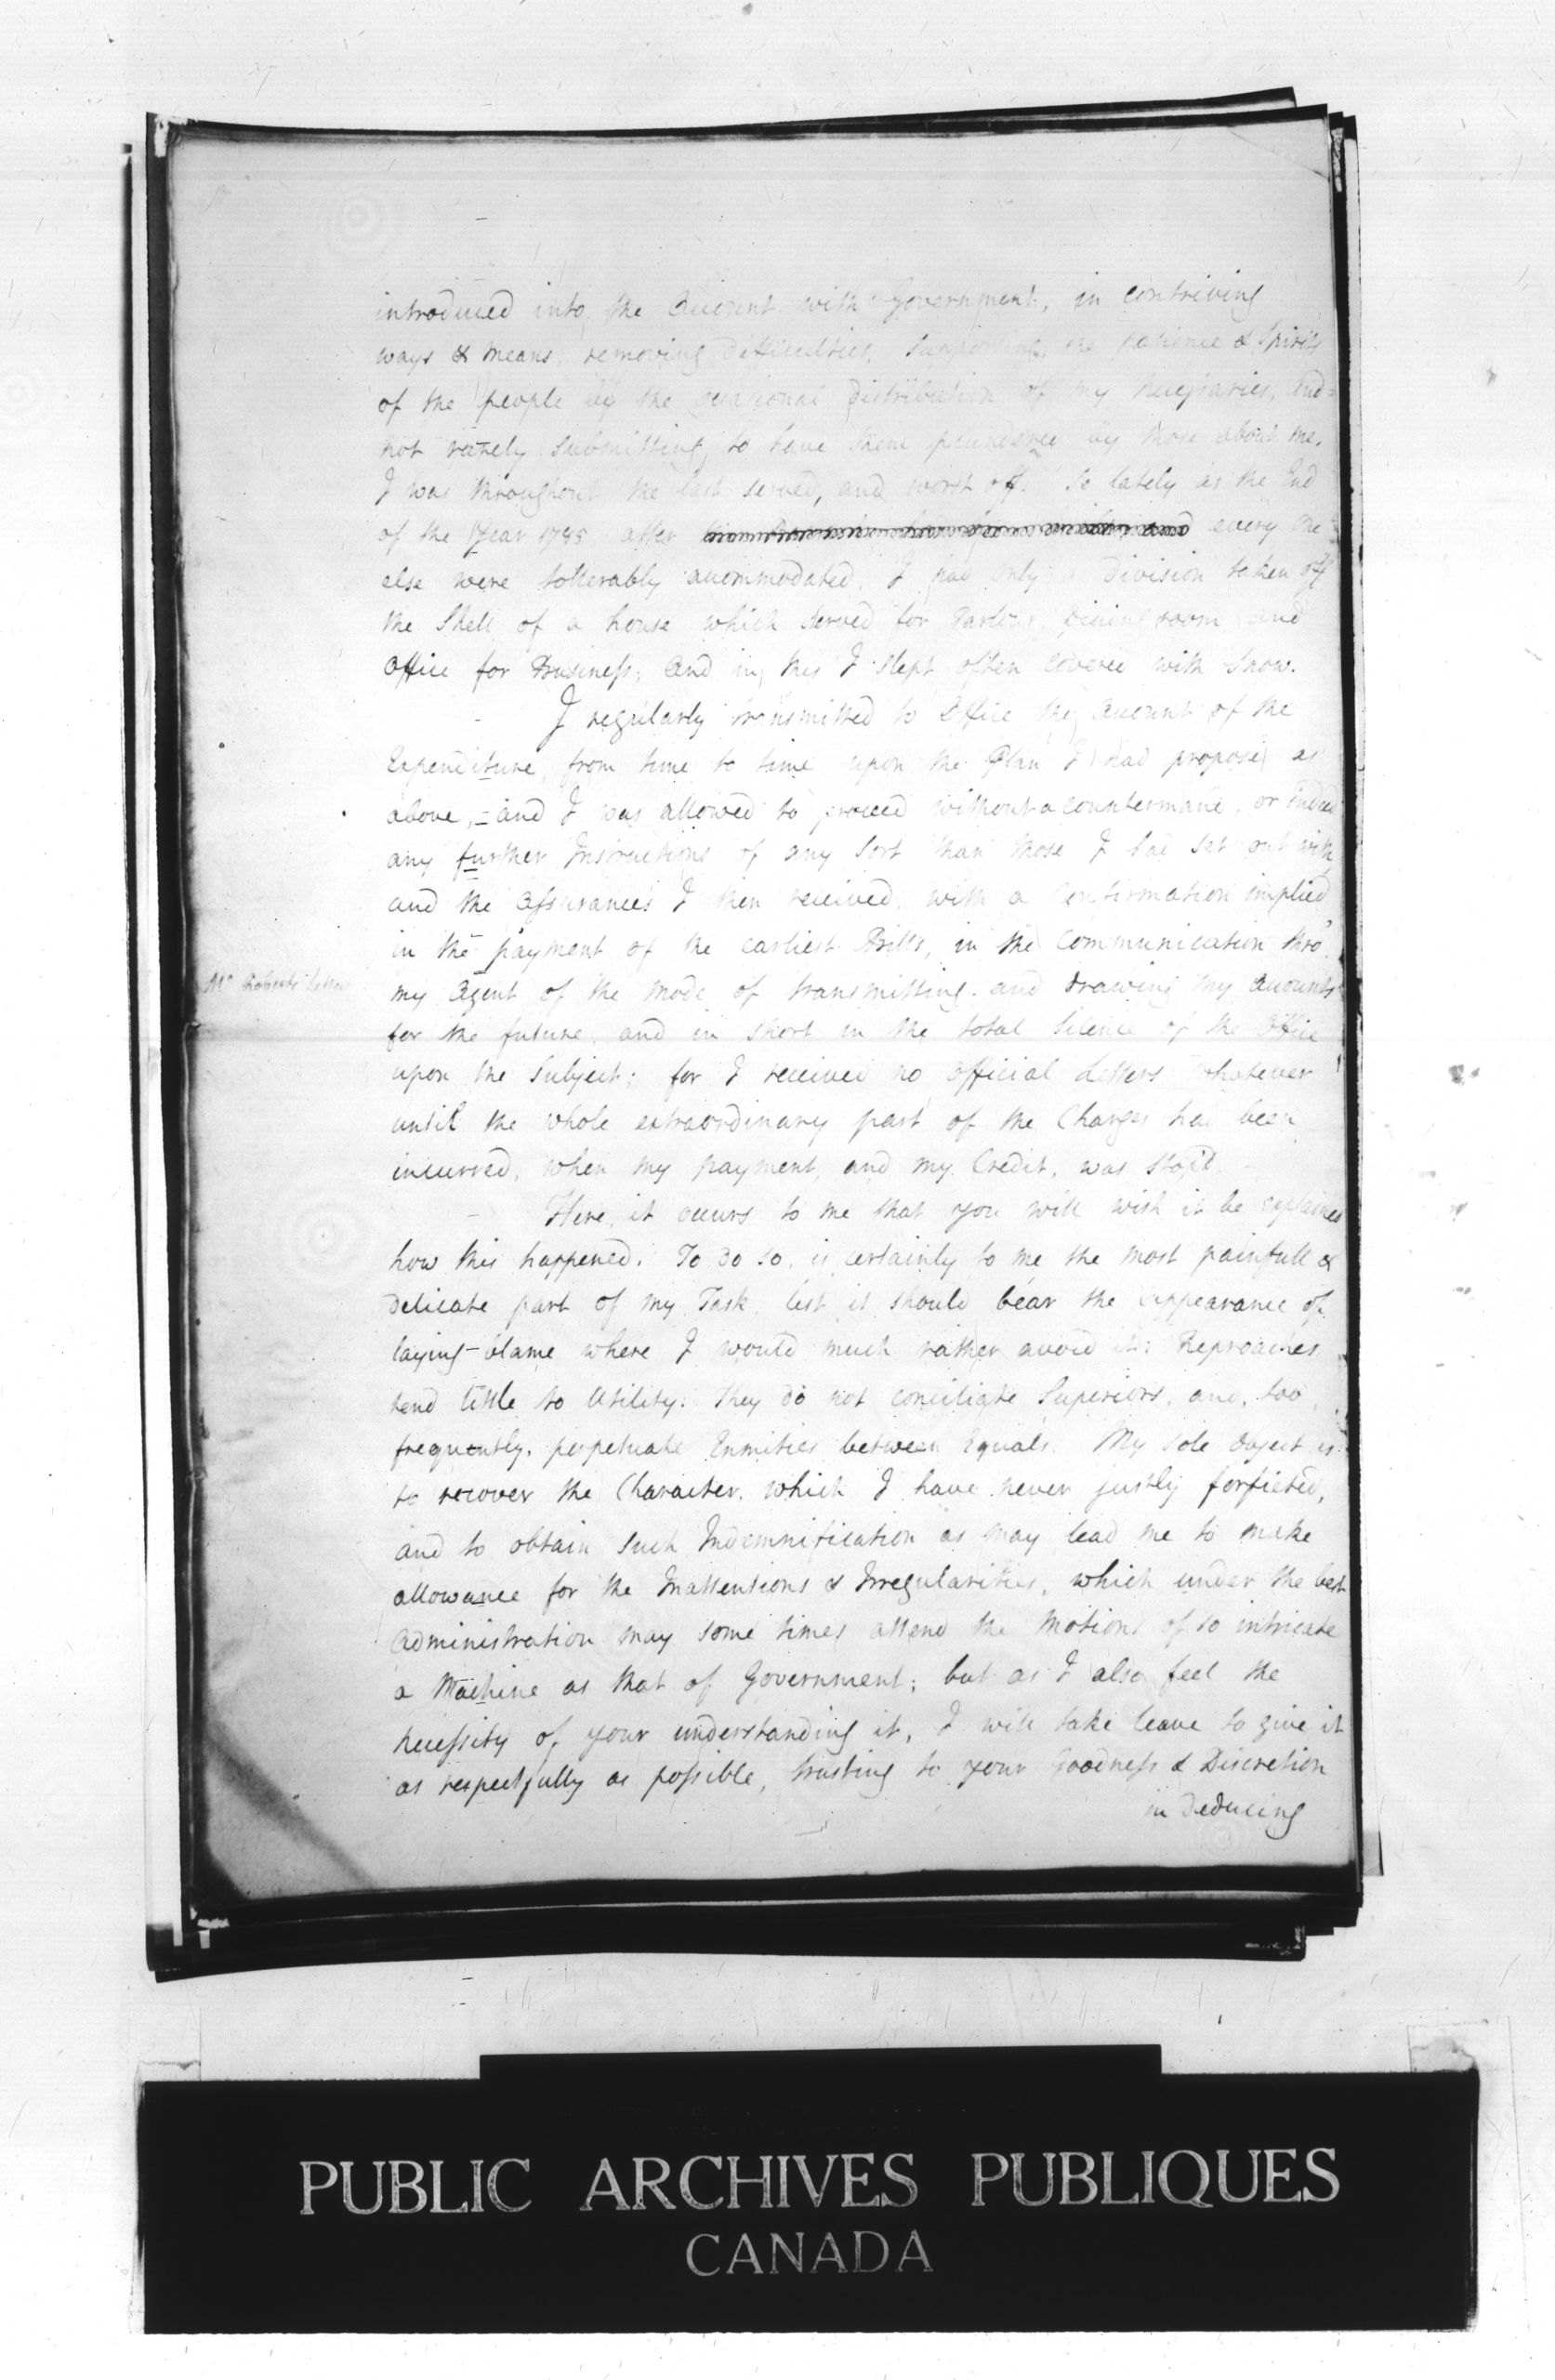 introduced into the Account with Government, in contriving
ways & means, removing difficulties, supporting the patience & Spirits
of the people by the occasional distribution of my necessaries, and
not rarely submitting to have them plundered by those about me.
I was throughout the last served, and worst off. So lately as the End
of the Year 1785 after every one
else were tollerably accommodated, I had only a division taken off
the Shell of a house which served for Parlour, Dining room and
Office for Business; and in this I slept often covered with Snow.
I regularly transmitted to Office the Account of the
Expenditure from time to time upon the Plan I had proposed as
above, - and I was allowed to proceed without a countermand, or Indeed
any further Instructions of any Sort than those I had set out with
and the Assurances I then received, with a Confirmation implied
in the payment of the earliest Bills, in the Communication thro'
Mr Roberts' Letter
my Agent of the mode of transmitting and drawing my Accounts
for the future, and in short in the total Silence of the Office
upon the Subject; for I received no Official Letters whatever
until the whole extraordinary part of the Charges had been
incurred, when my payment, and my Credit, was stop'd.
Here, it occurs to me that you will wish it be explained
how this happened. To do so, is certainly to me the most painfull &
delicate part of my Task, lest it should bear the appearance of
laying blame where I would much rather avoid it: Reproaches
tend little to Utility: they do not conciliate Superiors, and, too
frequently, perpetuate Enmities between Equals. My sole Object is
to recover the Character, which I have never justly forfieted,
and to obtain such Indemnification as may lead me to make
allowance for the Inattentions & Irregularities, which under the best
Administration may some times attend the Motions of so intricate
a Machine as that of Government; but as I also feel the
necessity of your understanding it, I will take leave to give it
as respectfully as possible, trusting to your Goodness & Discretion
in deducing
PUBLIC ARCHIVES PUBLIQUES
CANADA